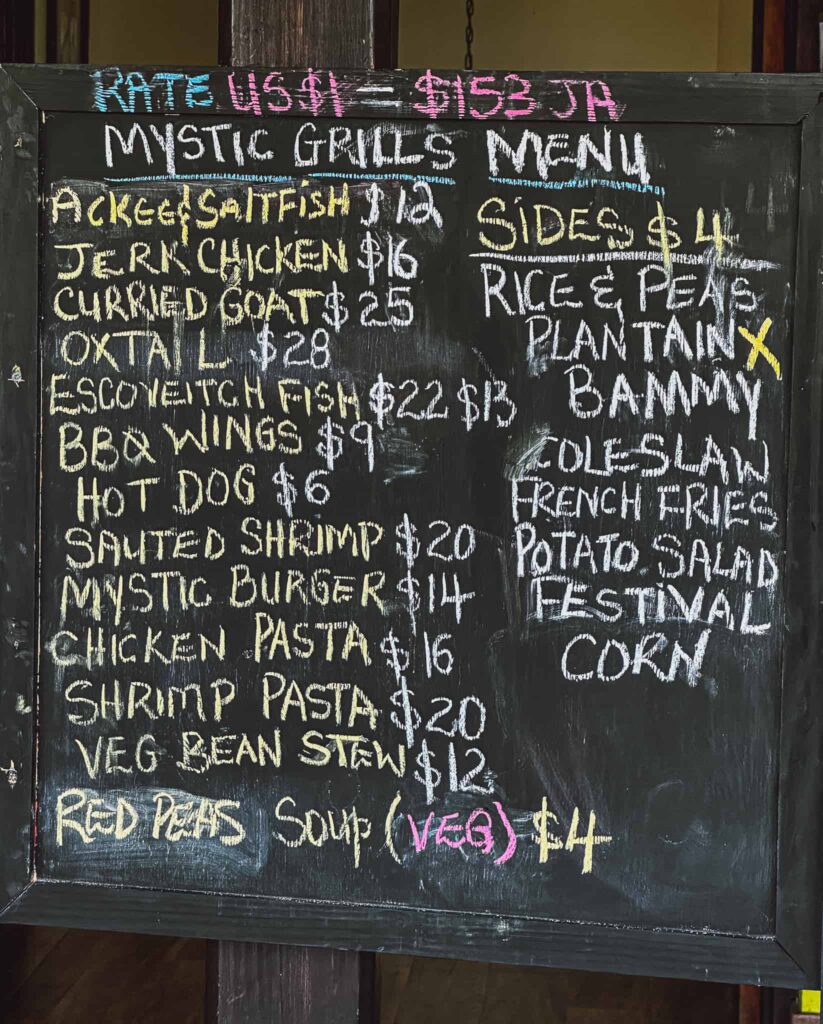 RATE US$1 = $153 JA
MYSTIC GRILLS MENU
ACKEE & SALTFISH $12
JERK CHICKEN $16
CURRIED GOAT $25
OXTAIL $28
ESCOVEITCH FISH $22 $13
BBQ WINGS $9
HOT DOG $6
SAUTED SHRIMP $20
MYSTIC BURGER $14
CHICKEN PASTA $16
SHRIMP PASTA $20
VEG BEAN STEW $12
RED PEAS SOUP (VEG) $4
SIDES $4
RICE & PEAS
PLANTAIN X
BAMMY
COLESLAW
FRENCH FRIES
POTATO SALAD
FESTIVAL
CORN